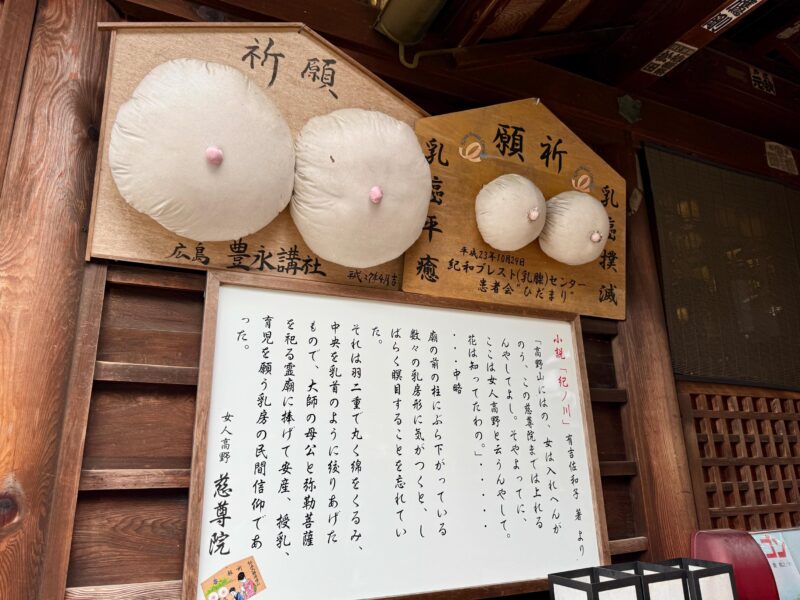 祈願
広島 豊永講社
平成27年4月吉
祈願
乳癌平癒
乳癌撲滅
平成23年10月29日
紀和ブレスト(乳腺)センター
患者会"ひだまり"
小説「紀ノ川」 有吉佐和子 著 より
「高野山にはの、女は入れへんが
のう、この慈尊院までは上れる
んやしてよし。そやよってに、
ここは女人高野と云うんやして。
花は知ってたわの。」・・・・・
・・・中略
廟の前の柱にぶら下がっている
数々の乳房形に気がつくと、し
ばらく瞑目することを忘れてい
た。
それは羽二重で丸く綿をくるみ、
中央を乳首のように絞りあげた
もので、大師の母公と弥勒菩薩
を祀る霊廟に捧げて安産、授乳、
育児を願う乳房の民間信仰であ
った。
女人高野 慈尊院
ゴン